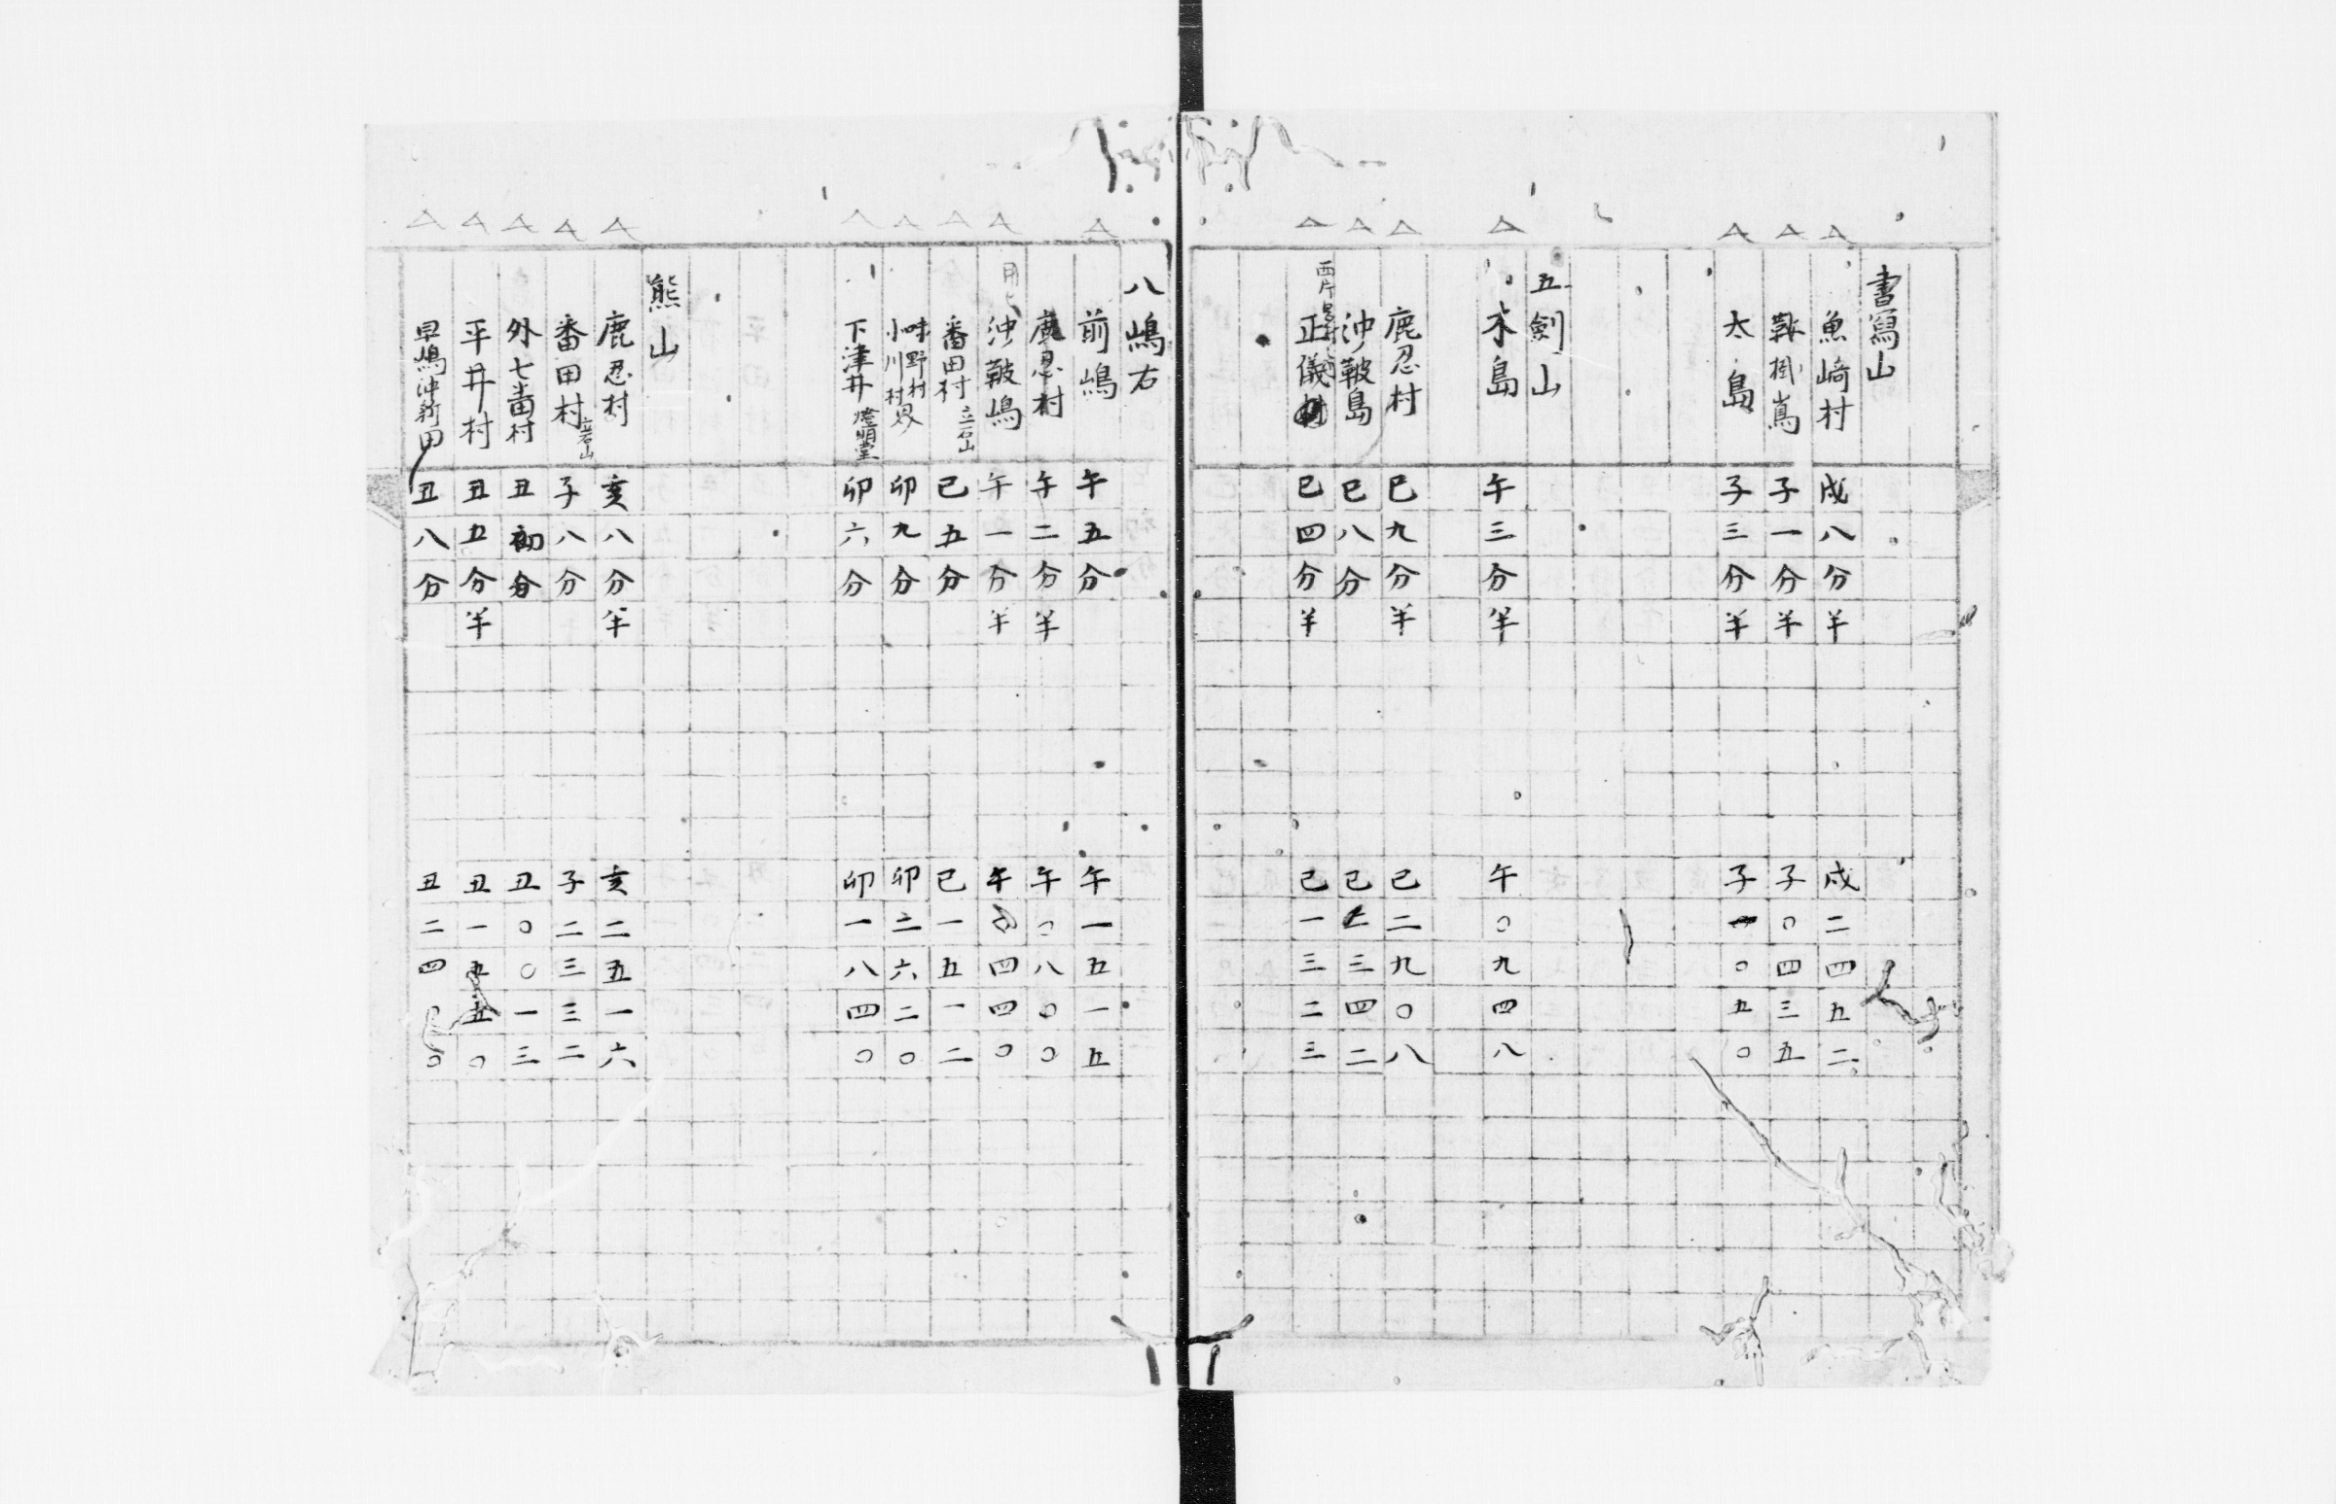 書寫山
魚﨑村 戌八分半 戌二四五二
鞍掛嶌 子一分半 子〇四三五
太島 子三分半 子一〇五〇
五劍山
木島 午三分半 午〇九四八
鹿忍村 巳九分半 巳二九〇八
沖ノ鞁島 巳八分 巳二三四二
西片 正儀村 巳四分半 巳一三二三
八嶋右
前嶋 午五分 午一五一五
鹿忍村 午二分半 午〇八〇〇
沖ノ鞁嶋 午一分半 午〇四四〇
番田村 立石山 巳五分 巳一五一二
味野村 小川村 界 卯九分 卯二六二〇
下津井 燈明堂 卯六分 卯一八四〇
熊山
鹿忍村 亥八分半 亥二五一六
番田村 立石山 子八分 子二三三二
外七番村 丑初分 丑〇〇一三
平井村 丑五分半 丑一五五〇
早嶋沖新田 丑八分 丑二四〇